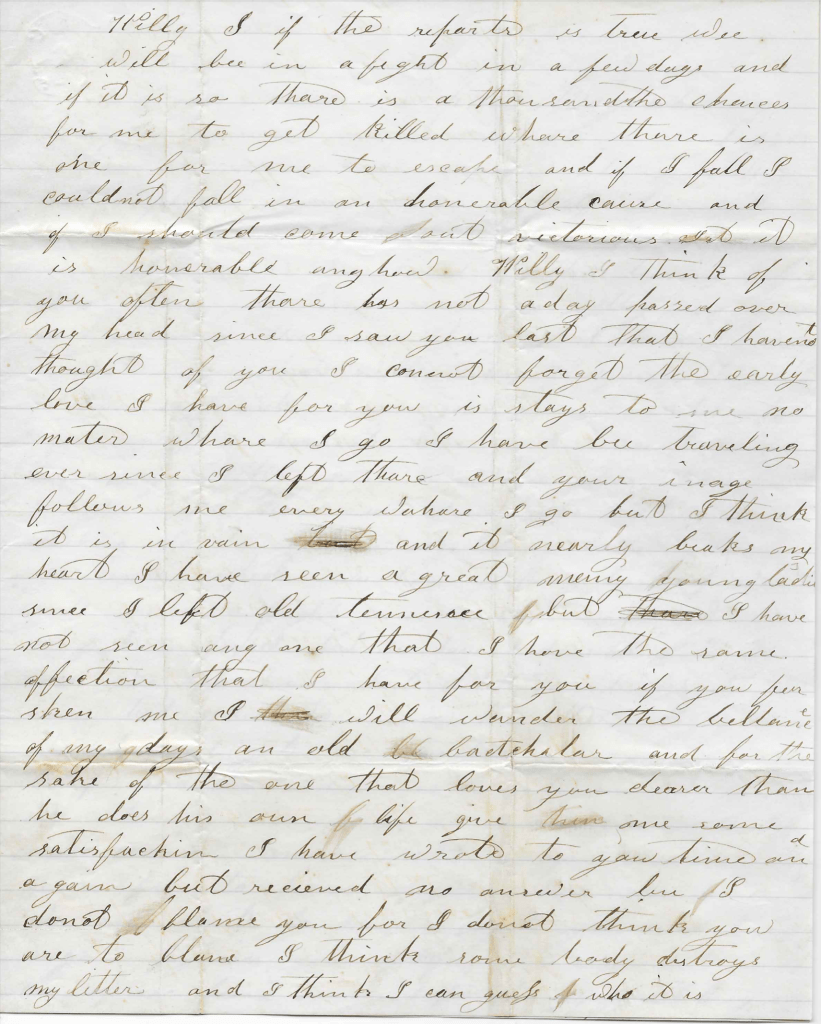 Willy I if the reparts is true wee
will bee in a fight in a few days and
if it is so thare is a thousandthe chaices
for me to get killed whare thare is
one for me to escape and if I fall I
couldnot fall in an honerable cause and
if I should come out victorious it
is honerable anghow. Willy I think of
you often thare has not a day passed over
my head since I saw you last that I havent
thought of you I connot forget the early
love I have for you is stays to me no
mater whare I go I have bee traveling
ever since I left thare and your inage
follows me every whare I go but I think
it is in vain and it nearly beaks my
heart I have seen a great meny young ladies
since I left old tennessee but thare I have
not seen ang one that I have the same
affection that I have for you if you for
sken me I will wander the bellance
of my days an old batchalar and for the
sake of the one that loves you dearer than
he does his own life give him me some
satisfachin I have wrote to you time and
a gain but recieved no answer but I
donot blame you for I donot think you
are to blame I think some body distroys
my letter and I think I can guess who it is